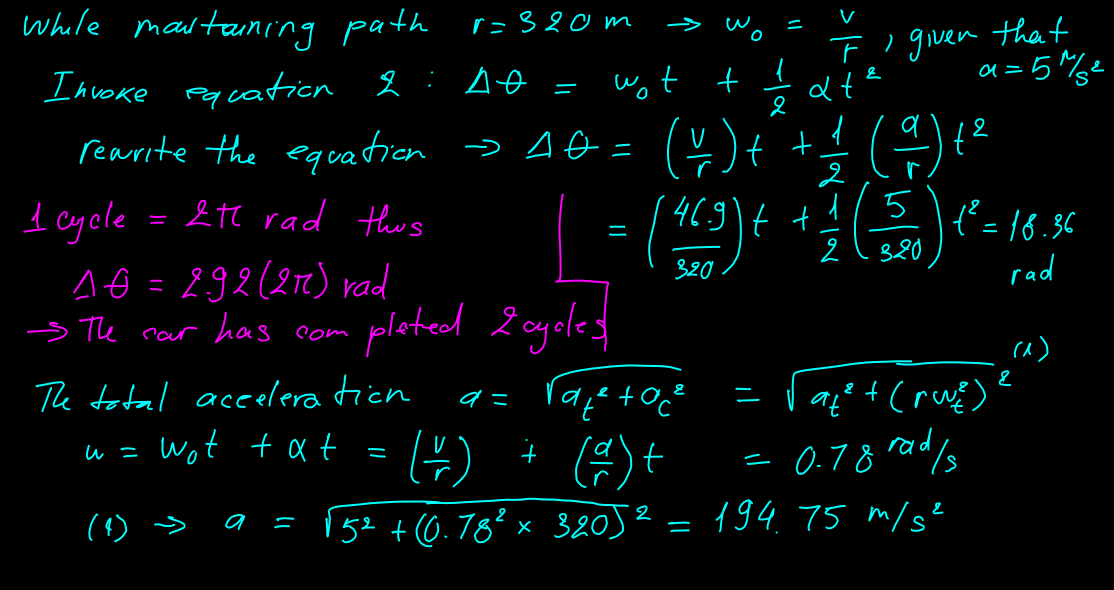 While maintaining path r = 320 m → w₀ = v/r, given that
a = 5 m/s²
Invoke equation 2 : Δθ = w₀t + 1/2 αt²
rewrite the equation → Δθ = (v/r)t + 1/2 (a/r)t²
= (46.9/320)t + 1/2 (5/320)t² = 18.36 rad
1 cycle = 2π rad thus
Δθ = 2.92(2π) rad
→ The car has completed 2 cycles
The total acceleration a = √(aₜ² + a_c²) = √(aₜ² + (rwₜ²)²) (1)
w = w₀t + αt = (v/r) + (a/r)t = 0.78 rad/s
(1) → a = √(5² + (0.78² × 320)²) = 194.75 m/s²